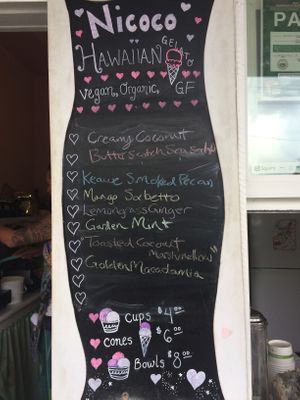 Nicoco
HAWAIIAN GELATO
Vegan, Organic, GF
Creamy Coconut
Butterscotch Sea Salt
Keawe Smoked Pecan
Mango Sorbetto
Lemongrass Ginger
Garden Mint
Toasted Coconut
"Marshmellow"
Golden Macadamia
CUPS $4.00
CONES $6.00
BOWLS $8.00
PA
Square